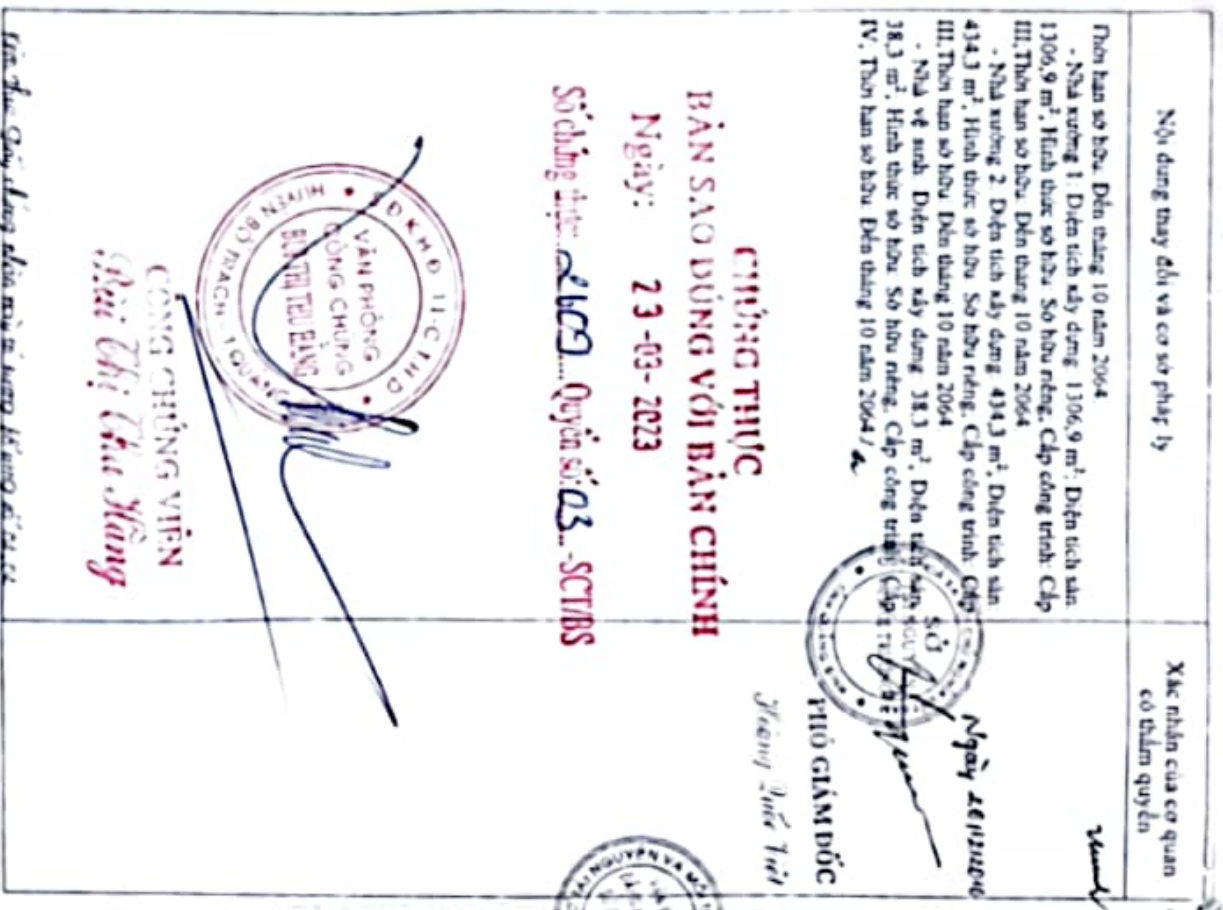 Nội dung thay đổi và cơ sở pháp lý
Xác nhận của cơ quan
có thẩm quyền
Thời hạn sở hữu: Đến tháng 10 năm 2064
- Nhà xưởng 1: Diện tích xây dựng: 1306,9 m²; Diện tích sàn:
1306,9 m²; Hình thức sở hữu: Sở hữu riêng; Cấp công trình: Cấp
III; Thời hạn sở hữu: Đến tháng 10 năm 2064
- Nhà xưởng 2: Diện tích xây dựng: 434,3 m²; Diện tích sàn:
434,3 m²; Hình thức sở hữu: Sở hữu riêng; Cấp công trình: Cấp
III; Thời hạn sở hữu: Đến tháng 10 năm 2064
- Nhà vệ sinh: Diện tích xây dựng: 38,3 m²; Diện tích sàn:
38,3 m²; Hình thức sở hữu: Sở hữu riêng; Cấp công trình: Cấp
IV; Thời hạn sở hữu: Đến tháng 10 năm 2064
Ngày
SỞ
PHÓ GIÁM ĐỐC
Hoàng Quốc Việt
CHỨNG THỰC
BẢN SAO ĐÚNG VỚI BẢN CHÍNH
Ngày: 23-03-2023
Số chứng thực: 2609... Quyển số: 03.. -SCT/BS
VĂN PHÒNG
CÔNG CHỨNG
BÙI THỊ THU HẰNG
HUYỆN BỐ TRẠCH - T.QUẢNG
CÔNG CHỨNG VIÊN
Bùi Thị Thu Hằng
TÀI NGUYÊN VÀ MÔ